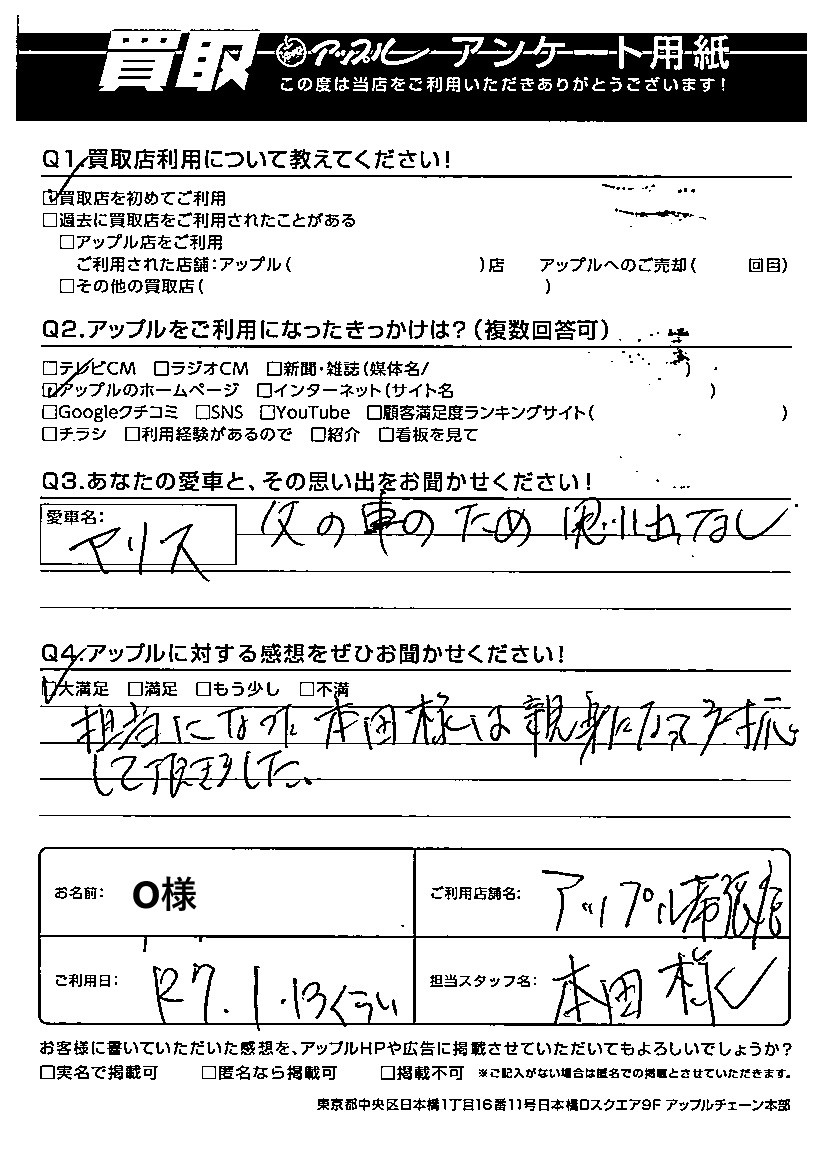 買取 アップル アンケート用紙
この度は当店をご利用いただきありがとうございます!
Q1.買取店利用について教えてください!
☑買取店を初めてご利用
□過去に買取店をご利用されたことがある
□アップル店をご利用
ご利用された店舗:アップル( )店 アップルへのご売却( 回目)
□その他の買取店( )
Q2.アップルをご利用になったきっかけは?(複数回答可)
□テレビCM □ラジオCM □新聞・雑誌(媒体名/ )
☑アップルのホームページ □インターネット(サイト名 )
□Googleクチコミ □SNS □YouTube □顧客満足度ランキングサイト( )
□チラシ □利用経験があるので □紹介 □看板を見て
Q3.あなたの愛車と、その思い出をお聞かせください!
愛車名: ヤリス
父の車のため 思い出なし
Q4.アップルに対する感想をぜひお聞かせください!
☑大満足 □満足 □もう少し □不満
担当になった本田様は親身になって対応
して頂きました。
お名前: O様
ご利用店舗名: アップル幕張店
ご利用日: R7.1.13くらい
担当スタッフ名: 本田 様
お客様に書いていただいた感想を、アップルHPや広告に掲載させていただいてもよろしいでしょうか?
□実名で掲載可 □匿名なら掲載可 □掲載不可 ※ご記入がない場合は匿名での掲載とさせていただきます。
東京都中央区日本橋1丁目16番11号日本橋Dスクエア9F アップルチェーン本部